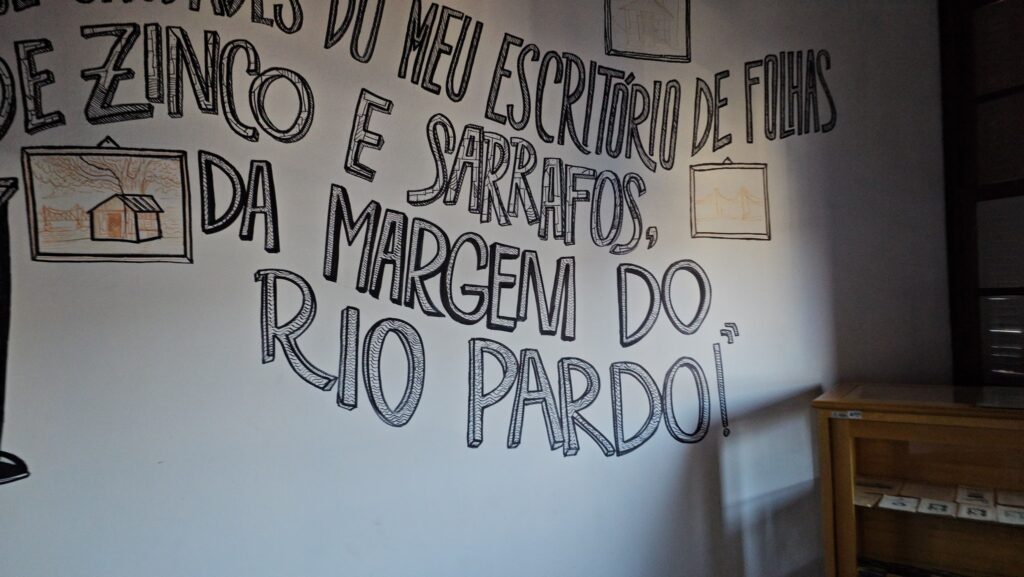 DO MEU ESCRITÓRIO DE FOLHAS
DE ZINCO E SARRAFOS,
DA MARGEM DO
RIO PARDO!”